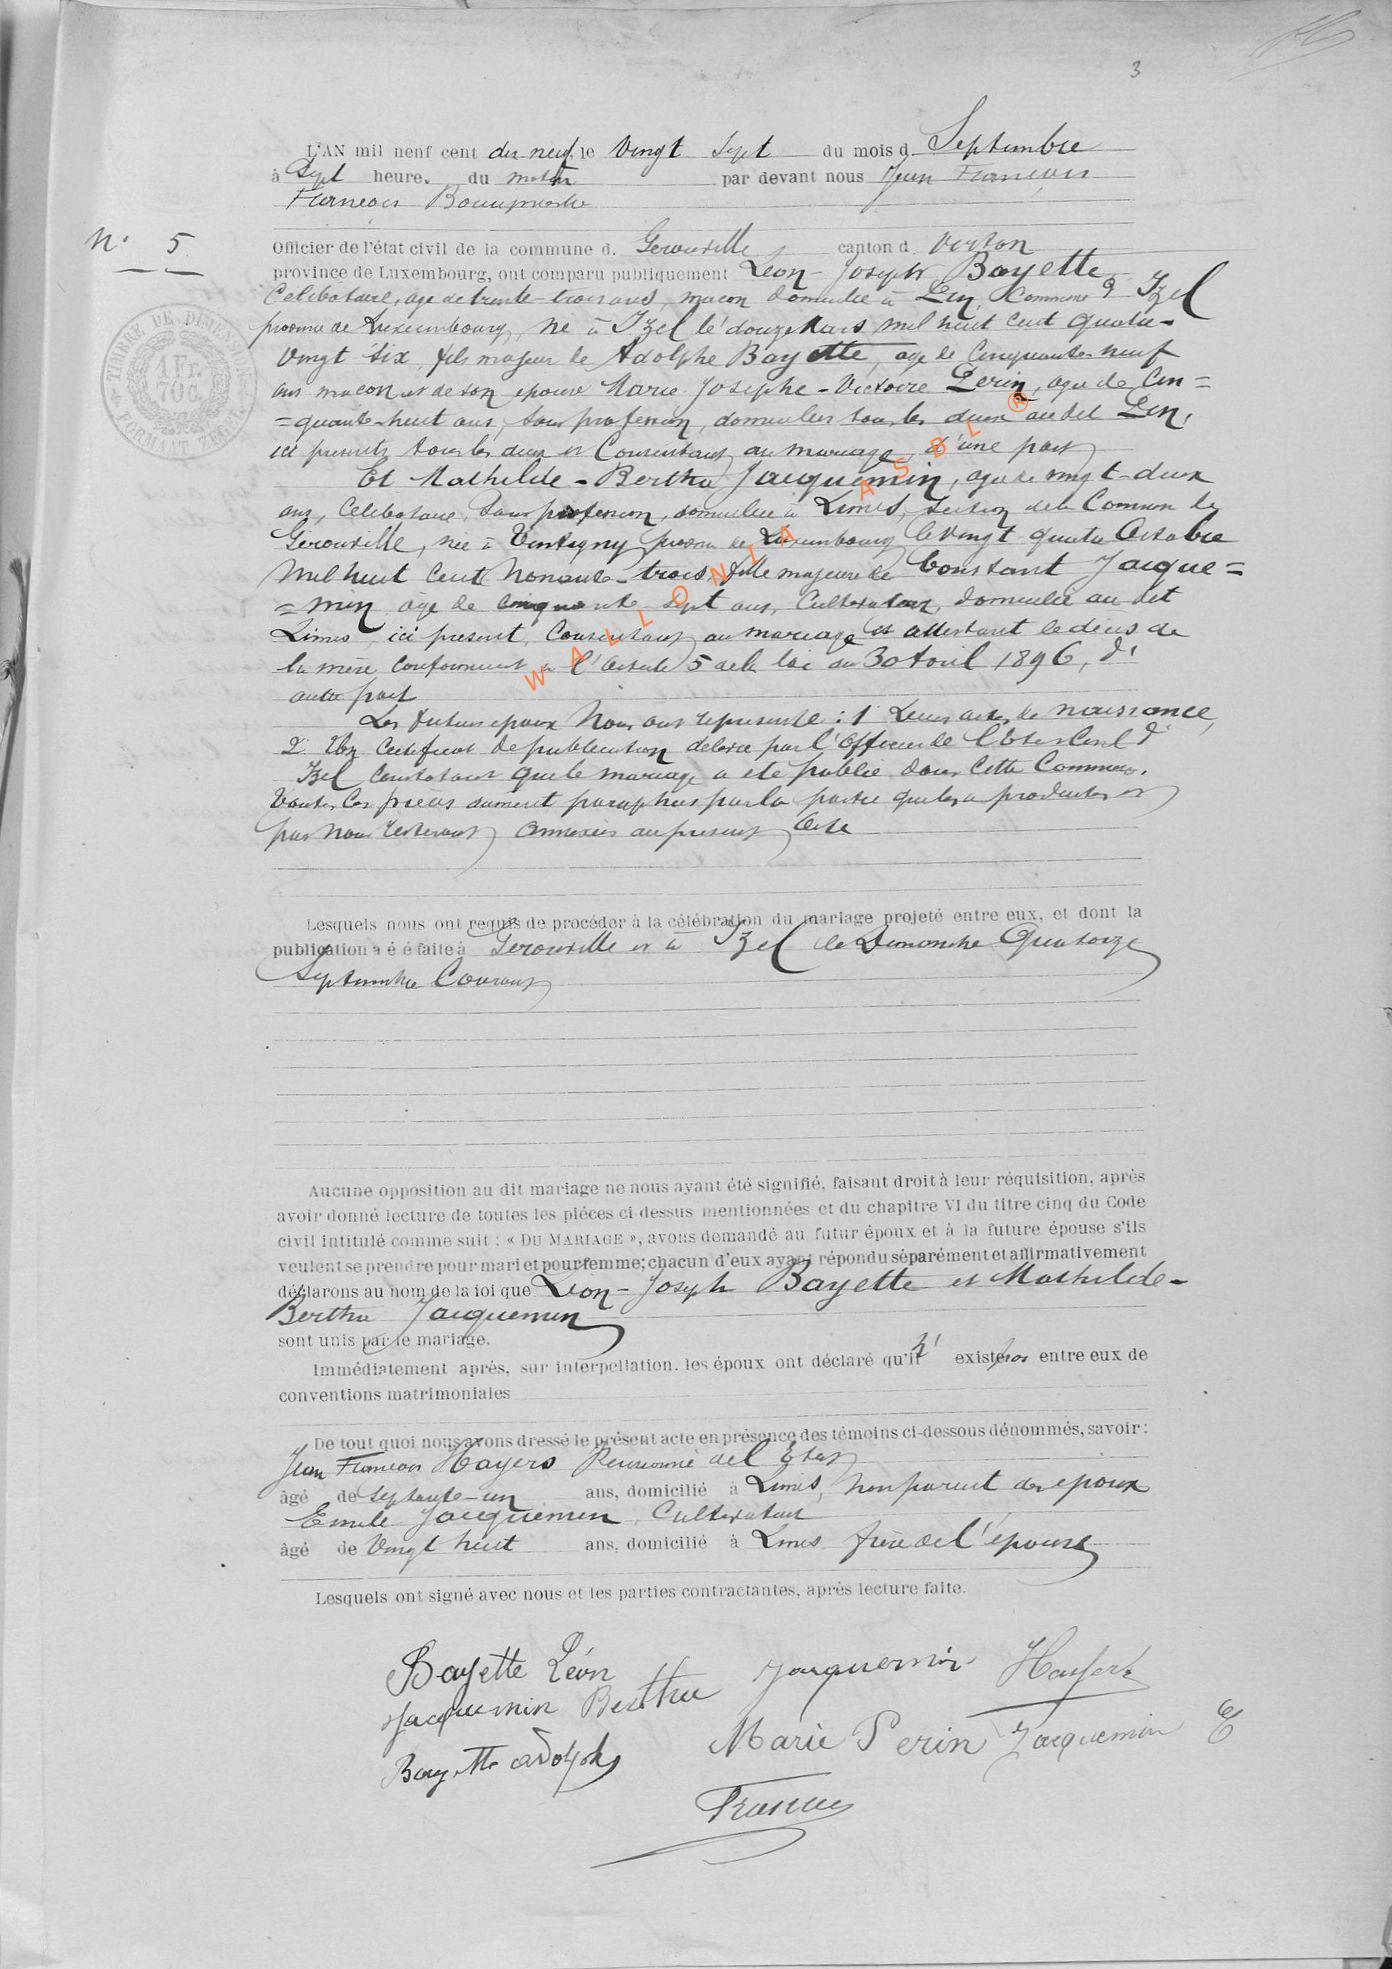 3
L'AN mil neuf cent dix neuf, le Vingt Sept du mois d Septembre
à Sept heure. du matin par devant nous Jean François
François
N° 5
Officier de l'état civil de la commune d. Gerouville canton d Virton
province de Luxembourg, ont comparu publiquement Léon-Joseph Bayette
Célibataire, âgé de trente-trois ans, maçon domicilié à Pin, Commune d' Izel
province de Luxembourg, né à Izel le douze Mars mil huit cent quatre-
vingt six, fils majeur de Adolphe Bayette, âgé de Cinquante-neuf
ans maçon et de son épouse Marie Josephe-Victoire Perin, âgée de Cin=
=quante-huit ans, sans profession, domiciliés tous les deux au dit Pin,
ici présents tous les deux et Consentant au mariage, d'une part
Et Mathilde-Bertha Jacquemin, âgée de vingt-deux
ans, Célibataire, Sans profession, domiciliée à Limes, section de la Commune de
Gerouville, née à Tintigny province de Luxembourg le vingt quatre Octobre
Mil huit Cent Nonante-trois, fille majeure de Constant Jacque=
=min âgé de cinquante sept ans, Cultivateur, domicilié au dit
Limes, ici présent, Consentant au mariage et attestant le décès de
la mère conformément à l'article 5 de la loi du 30 Avril 1896, d'
autre part
Les futurs époux Nous ont représenté : 1° Leurs actes de naissance,
2° Un Certificat de publication délivré par l'Officier de l'Etat Civil d'
Izel Constatant que le mariage a été publié dans Cette Commune.
Toutes Ces pièces dument paraphées par la partie qui les a produites et
par Nous resteront annexées au présent Acte
Lesquels nous ont requis de procéder à la célébration du mariage projeté entre eux, et dont la
publication a é é faite à Gérouville et à Izel le Dimanche Quatorze
Septembre Courant
Aucune opposition au dit mariage ne nous ayant été signifié, faisant droit à leur réquisition, après
avoir donné lecture de toutes les pièces ci-dessus mentionnées et du chapitre VI du titre cinq du Code
civil intitulé comme suit : « DU MARIAGE », avons demandé au futur époux et à la future épouse s'ils
veulent se prendre pour mari et pour femme; chacun d'eux ayant répondu séparément et affirmativement
déclarons au nom de la loi que Léon-Joseph Bayette et Mathilde-
Bertha Jacquemin
sont unis par le mariage.
Immédiatement après, sur interpellation. les époux ont déclaré qu'il n' existe pas entre eux de
conventions matrimoniales
De tout quoi nous avons dressé le présent acte en présence des témoins ci-dessous dénommés, savoir :
Jean François Hayers Pensionné de l'Etat
âgé de Septante-un ans, domicilié à Limes, Non parent des époux
Emile Jacquemin, Cultivateur
âgé de Vingt huit ans, domicilié à Limes frère de l'épouse
Lesquels ont signé avec nous et les parties contractantes, après lecture faite.
Bayette Léon Jacquemin
Jacquemin Bertha
Marie Perin Jacquemin E
Bayette Adolphe
TIMBRE DE DIMENSION
1 Fr.
70 C.
WALLONIA ASBL ®